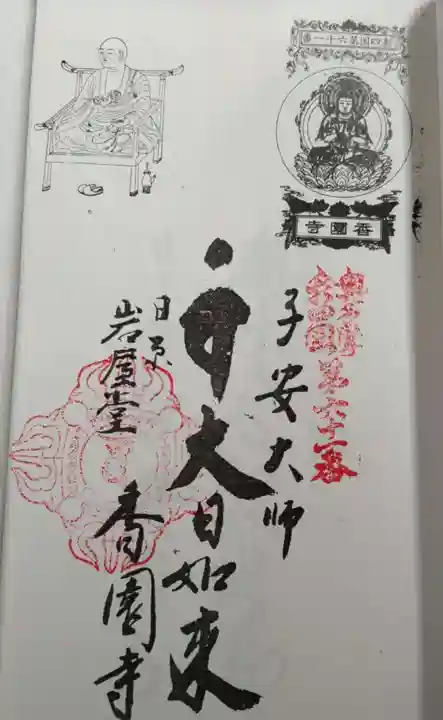 四国第六十一番
香園寺
第六十一番
子安大師
大日如来
岩屋堂
香園寺